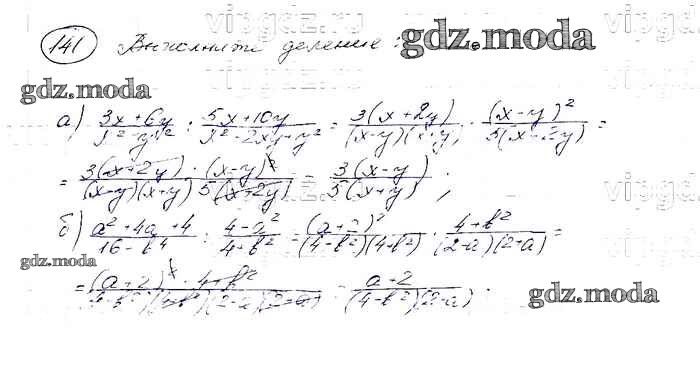 141 Выполните деление:
gdz.moda
gdz.moda
а) (3x+6y)/(x²-y²) : (5x+10y)/(x²-2xy+y²) = 3(x+2y)/((x-y)(x+y)) · (x-y)²/(5(x+2y)) =
= (3(x+2y)·(x-y)²)/((x-y)(x+y)5(x+2y)) = 3(x-y)/(5(x+y)) ;
б) (a²+4a+4)/(16-b⁴) : (4-a²)/(4+b²) = (a+2)²/((4-b²)(4+b²)) · (4+b²)/((2-a)(2+a)) =
gdz.moda
= ((a+2)²·4+b²)/((4-b²)(4+b²)(2-a)(2+a)) = (a+2)/((4-b²)(2-a)) .
gdz.moda